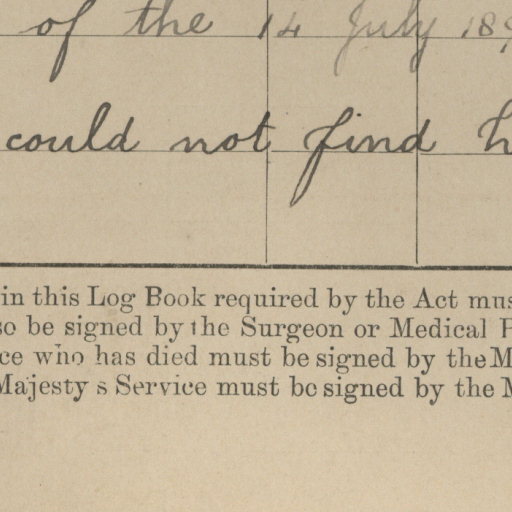 of the 14 July 189
could not find h
in this Log Book required by the Act mus
so be signed by the Surgeon or Medical P
ce who has died must be signed by the M
Majesty s Service must be signed by the M